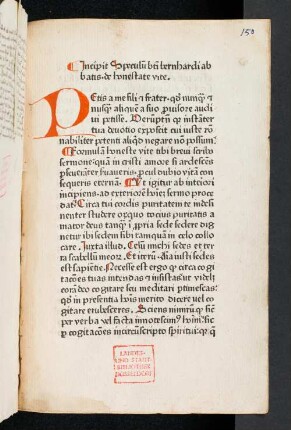 150
Incipit Speculū bti bernhardi ab
batis de honestate vite.
Petis a me fili & frater qd nunqͣ &
nusqͣ aliquē a suo ꝓuisore audi
ui petisse. Verūptn̄ qꝛ instāter
tua deuotio exposcit cui iuste rō
nabiliter petenti aliqd negare nō possum
Formulam honeste vite tibi breui scribo
sermone quā in cristi amore si ardesces
ꝓseuerāter seruaueris ꝓcul dubio vitā con
sequeris eternā. Vt igitur ab interiori
incipiens ad exteriorē hoīez sermo proce
dat Circa tui cordis puritatem te mēsi
nenter studere oportꝫ tocius puritatis a
mator deus tanqͣ ī ꝓpria sede sedere dig
netur ibi sedem sibi tamquā in celo collo
care. Iuxta illud. Celū michi sedes et ter
ra scabellū meoꝝ. Et iterū Aīa iusti sedes
est sapiētie. Necesse est ergo ꝙ circa cogi
tacōes tuas intendas & insistas ut videlꝫ
corā deo cogitare seu meditari ꝑtimescas
qd in presentia hoīs merito dicere vel co
gitare erubesceres. Sciens nimirū ꝙ sic
per verba vel facta innotescimꝰ hoībꝫ sic
ꝑ cogitacōes incircūscripto spiritui qꝛ ꝗ
LANDES-
UND STADT-
BIBLIOTHEK
DÜSSELDORF